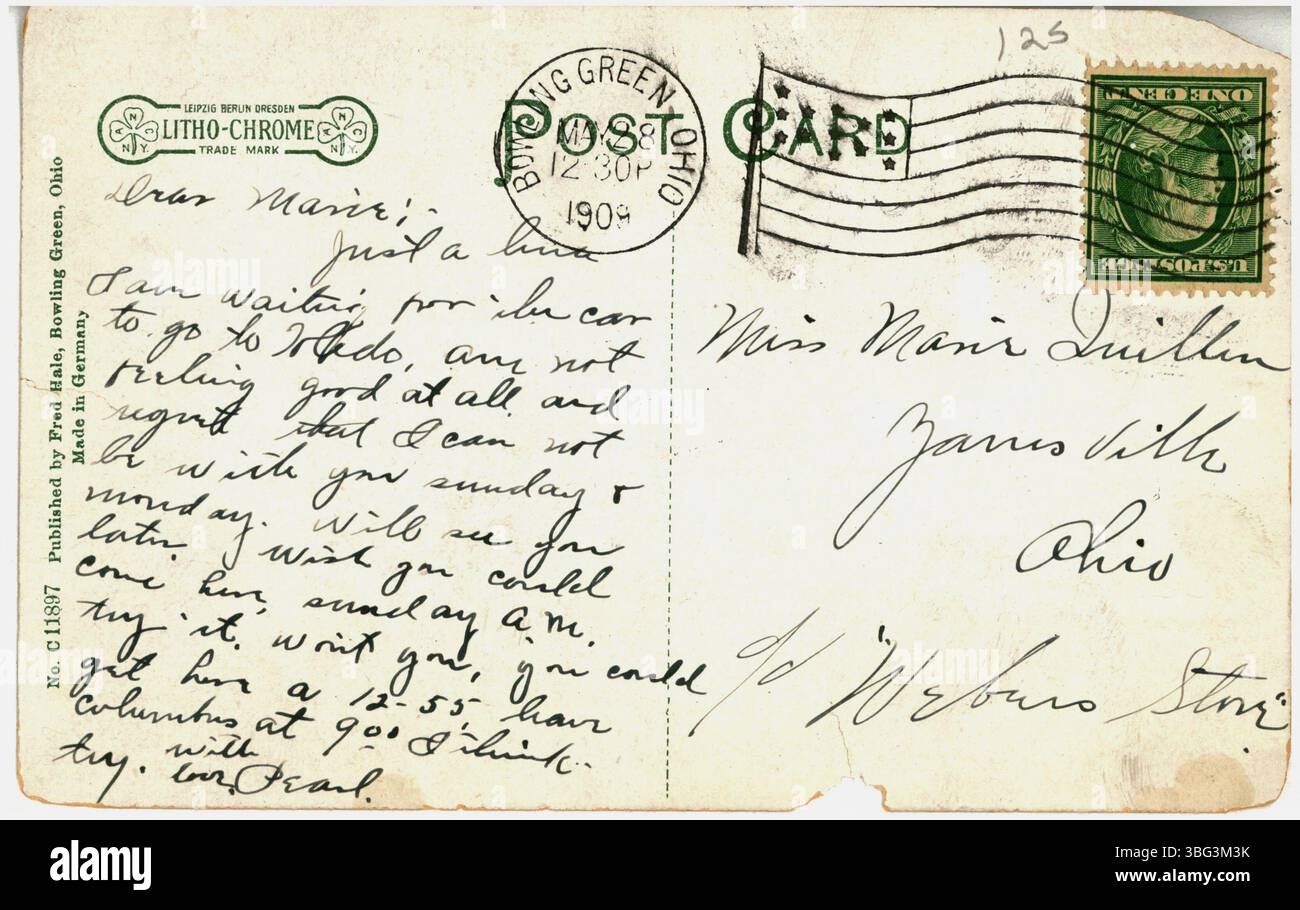 125
LEIPZIG BERLIN DRESDEN
LITHO-CHROME
TRADE MARK
N A N Y
N C N.Y.
POST CARD
BOWLING GREEN, OHIO
MAY 28
12-30P
1909
ONE CENT
U.S. POSTAGE
No. C 11897 Published by Fred Hale, Bowling Green, Ohio
Made in Germany
Dear Marie;-
Just a line
I am waiting for the car
to go to Toledo, am not
feeling good at all and
regret that I can not
be with you sunday &
monday. Will see you
later. Wish you could
come here, sunday A.M.
try it. Won't you, you could
get here a 12-55, leave
Columbus at 900 I think
try. with
love, Pearl.
Miss Marie Quillen
Zanesville
Ohio
c/o "Webers Store"
alamy
Image ID: 3BG3M3K
www.alamy.com